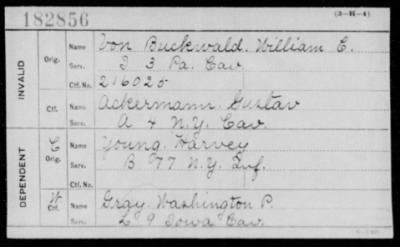 182856
(3-H-4)
INVALID
DEPENDENT
Orig. Name Von Buckwald. William E.
Serv. I 3 Pa. Cav.
Ctf. No. 216025
Ctf. Name Ackermann. Gustav
Serv. A 4 N.Y. Cav.
C Orig. Name Young. Harvey
Serv. B 77 N.Y. Inf.
Ctf. No.
W Ctf. Name Gray. Washington P.
Serv. L 9 Iowa Cav.